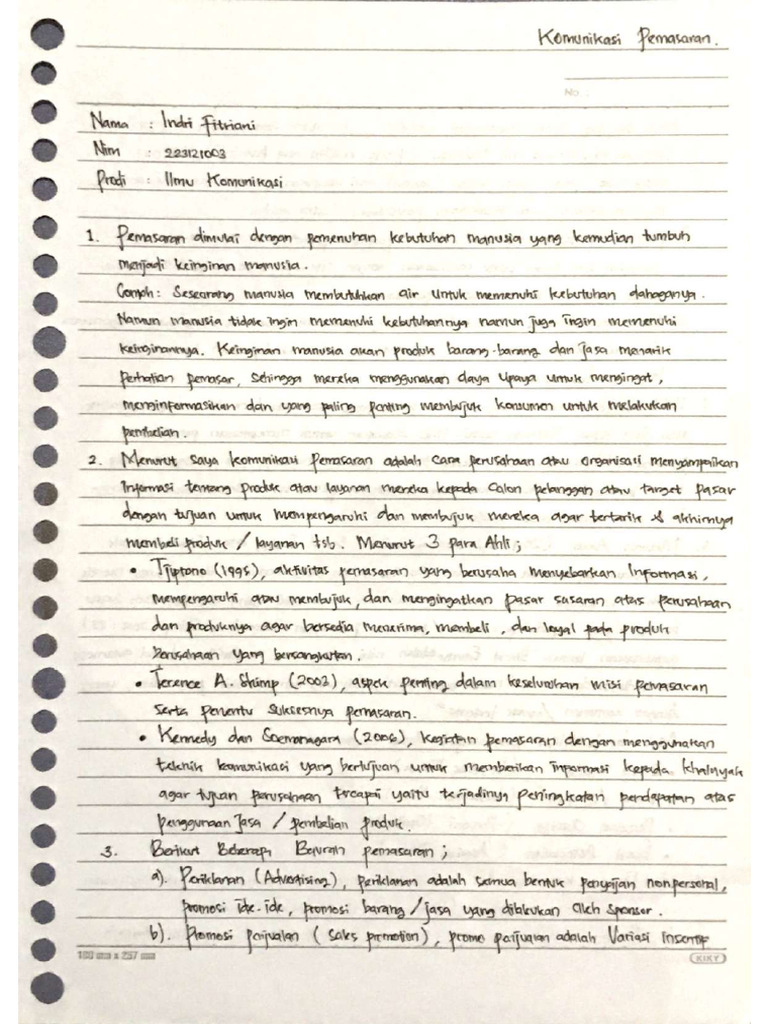 Komunikasi Pemasaran.
No :
Nama : Indri Fitriani
Nim : 223121003
Prodi : Ilmu Komunikasi
1. Pemasaran dimulai dengan pemenuhan kebutuhan manusia yang kemudian tumbuh
menjadi keinginan manusia.
Contoh: Seseorang manusia membutuhkan air untuk memenuhi kebutuhan dahaganya.
Namun manusia tidak ingin memenuhi kebutuhannya namun juga ingin memenuhi
keinginannya. Keinginan manusia akan produk barang-barang dan jasa menarik
perhatian pemasar, sehingga mereka menggunakan daya upaya untuk mengingat,
menginformasikan dan yang paling penting membujuk konsumen untuk melakukan
pembelian.
2. Menurut saya komunikasi pemasaran adalah cara perusahaan atau organisasi menyampaikan
Informasi tentang produk atau layanan mereka kepada calon pelanggan atau target pasar
dengan tujuan untuk mempengaruhi dan membujuk mereka agar tertarik & akhirnya
membeli produk / layanan tsb. Menurut 3 para Ahli;
• Tjiptono (1995), aktivitas pemasaran yang berusaha menyebarkan Informasi,
mempengaruhi atau membujuk, dan mengingatkan pasar sasaran atas perusahaan
dan produknya agar bersedia menerima, membeli, dan loyal pada produk
perusahaan yang bersangkutan.
• Terence A. Shimp (2003), aspek penting dalam keseluruhan misi pemasaran
serta penentu suksesnya pemasaran.
• Kennedy dan Soemanagara (2006), kegiatan pemasaran dengan menggunakan
teknik komunikasi yang bertujuan untuk memberikan informasi kepada khalayak
agar tujuan perusahaan tercapai yaitu terjadinya peningkatan pendapatan atas
penggunaan jasa / pembelian produk.
3. Berikut Beberapa Bauran pemasaran;
a). Periklanan (Advertising), periklanan adalah semua bentuk penyajian nonpersonal,
promosi ide-ide, promosi barang / jasa yang dilakukan oleh sponsor.
b). Promosi penjualan (sales promotion), promo penjualan adalah Variasi insentif
180 mm x 257 mm
KIKY